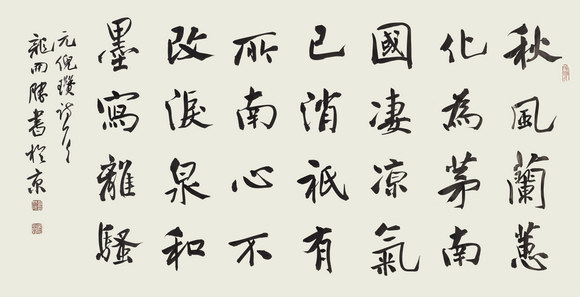 秋風蘭蕙
化為茅南
國凄凉氣
已消祇有
所南心不
改淚泉和
墨寫離騷
元倪瓚詩
龍開勝書於京